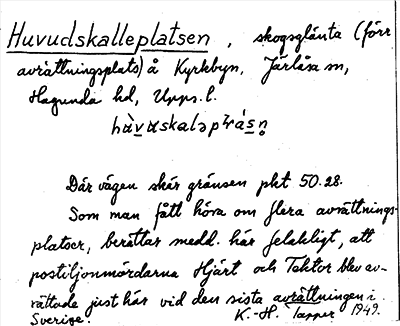 Huvudskalleplatsen, skogsglänta (förr
avrättningsplats) å Kyrkbyn, Järlåsa sn,
Hagunda hd, Upps. l.
Där vägen skär gränsen pkt 50.28.
Som man fått höra om flera avrättnings-
platser, berättar medd. här felaktigt, att
postiljonmördarna Hjärt och Tektor blev av-
rättade just här vid den sista avrättningen i
Sverige. K.-H. Tapper 1949.